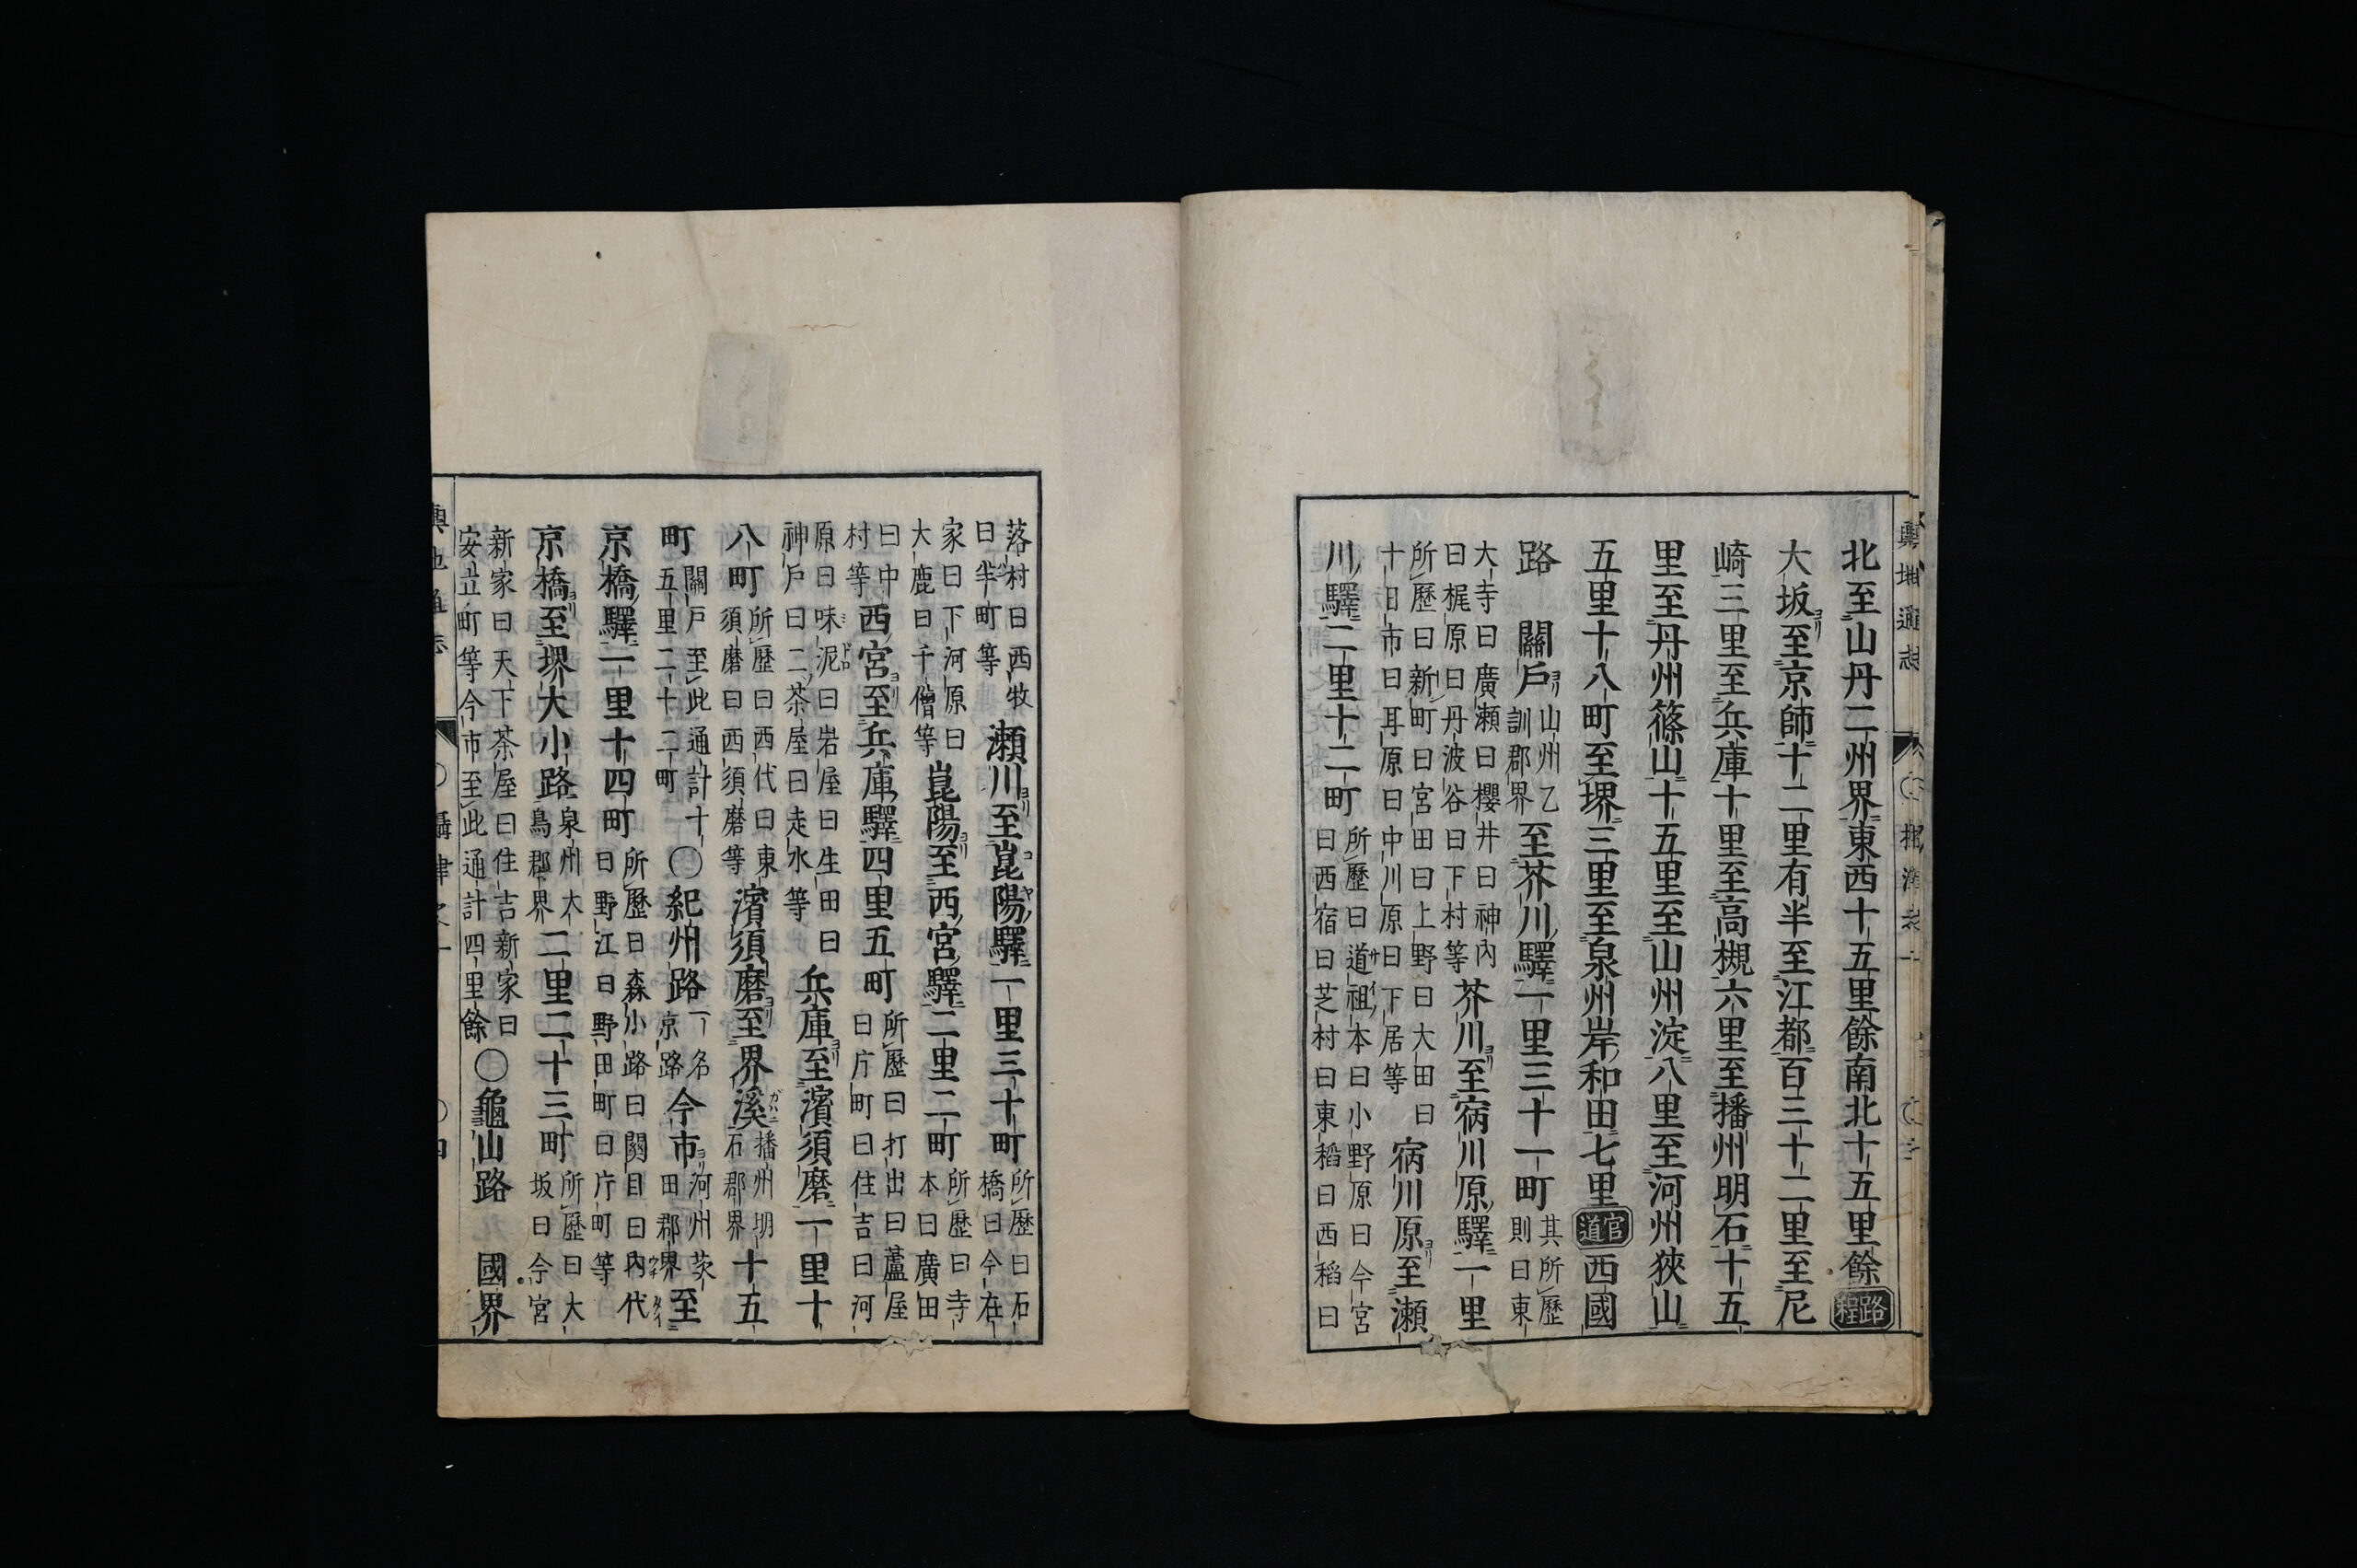 北至山丹二州界東西十五里餘南北十五里餘路程
大坂ヨリ至京師十二里有半至江都百三十二里至尼
崎三里至兵庫十里至高槻六里至播州明石十五
里至丹州篠山十五里至山州淀八里至河州狹山
五里十八町至堺三里至泉州岸和田七里官道西國
路 關戸ヨリ山州乙訓郡界至芥川驛一里三十一町其所歷則曰東
大寺曰廣瀬曰櫻井曰神內曰梶原曰丹波谷曰下村等芥川ヨリ至宿川原驛一里
所歷曰新町曰宮田曰上野曰大田曰十日市曰耳原曰中川原曰下居等宿川原ヨリ至瀬
川驛二里十二町所歷曰道祖本曰小野原曰今宮曰西宿曰芝村曰東稻曰西稻曰
落村曰西牧曰半町等瀬川ヨリ至崑陽驛一里三十町所歷曰石橋曰今在
家曰下河原曰大鹿曰千僧等崑陽ヨリ至西宮驛二里二町所歷曰寺本曰廣田
曰中村等西宮ヨリ至兵庫驛四里五町所歷曰打出曰蘆屋曰片町曰住吉曰河
原曰味泥曰岩屋曰生田曰神戸曰二茶屋曰走水等兵庫ヨリ至濱須磨一里十
八町所歷曰西代曰東須磨曰西須磨等濱須磨ヨリ至界溪播州明石郡界十五
町關戸至此通計十五里二十二町〇紀州路一名京路今市ヨリ河州茨田郡界至
京橋驛一里十四町所歷曰森小路曰關目曰內代曰野江曰野田町曰片町等
京橋ヨリ至堺大小路泉州大鳥郡界二里二十三町所歷曰大坂曰今宮
新家曰天下茶屋曰住吉新家曰安立町等今市至此通計四里餘〇龜山路 國界